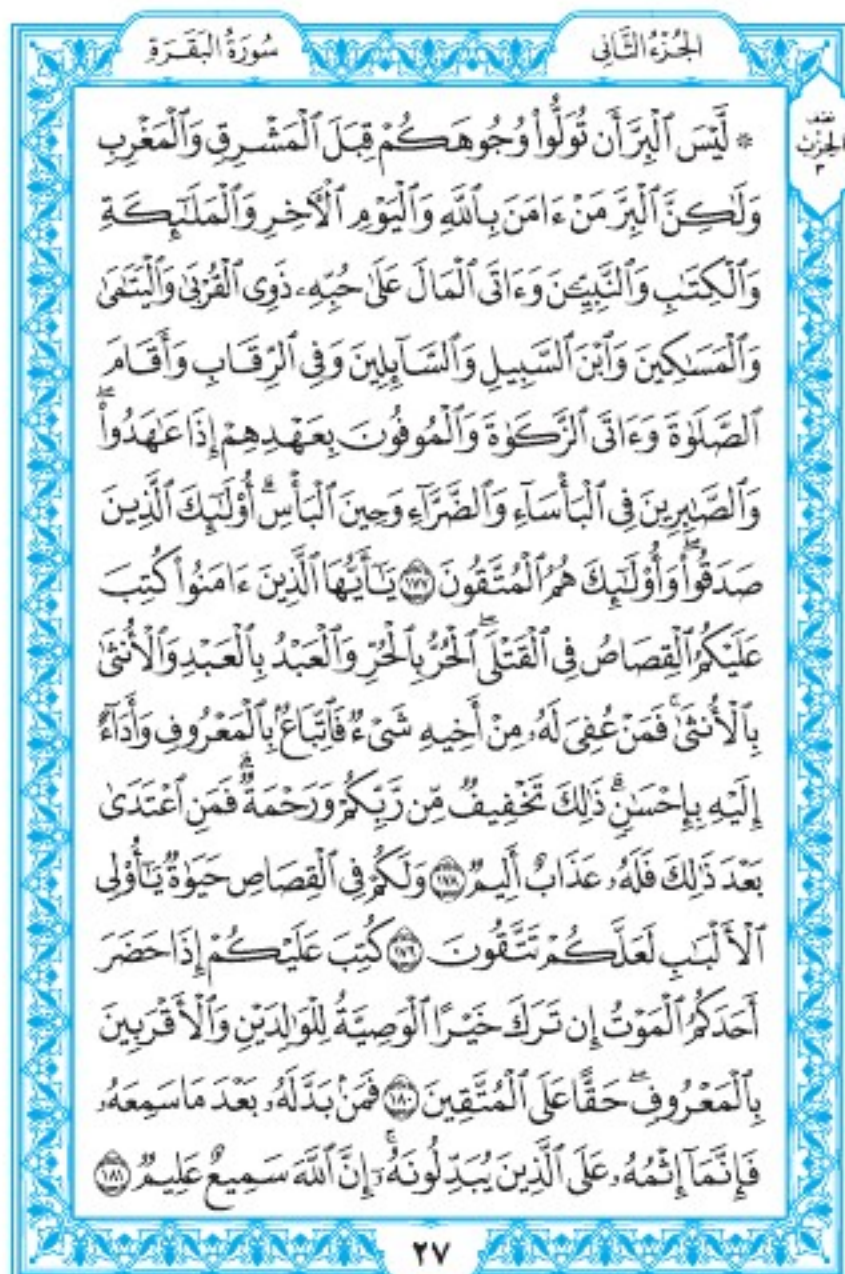 الجُزْءُ الثَّانِي
سُورَةُ البَقَرَةِ
نصف
الحزب
٣
* لَّيْسَ ٱلْبِرَّ أَن تُوَلُّوا۟ وُجُوهَكُمْ قِبَلَ ٱلْمَشْرِقِ وَٱلْمَغْرِبِ
وَلَـٰكِنَّ ٱلْبِرَّ مَنْ ءَامَنَ بِٱللَّهِ وَٱلْيَوْمِ ٱلْـَٔاخِرِ وَٱلْمَلَـٰٓئِكَةِ
وَٱلْكِتَـٰبِ وَٱلنَّبِيِّـۧنَ وَءَاتَى ٱلْمَالَ عَلَىٰ حُبِّهِۦ ذَوِى ٱلْقُرْبَىٰ وَٱلْيَتَـٰمَىٰ
وَٱلْمَسَـٰكِينَ وَٱبْنَ ٱلسَّبِيلِ وَٱلسَّآئِلِينَ وَفِى ٱلرِّقَابِ وَأَقَامَ
ٱلصَّلَوٰةَ وَءَاتَى ٱلزَّكَوٰةَ وَٱلْمُوفُونَ بِعَهْدِهِمْ إِذَا عَـٰهَدُوا۟ ۖ
وَٱلصَّـٰبِرِينَ فِى ٱلْبَأْسَآءِ وَٱلضَّرَّآءِ وَحِينَ ٱلْبَأْسِ ۗ أُو۟لَـٰٓئِكَ ٱلَّذِينَ
صَدَقُوا۟ ۖ وَأُو۟لَـٰٓئِكَ هُمُ ٱلْمُتَّقُونَ ١٧٧ يَـٰٓأَيُّهَا ٱلَّذِينَ ءَامَنُوا۟ كُتِبَ
عَلَيْكُمُ ٱلْقِصَاصُ فِى ٱلْقَتْلَى ۖ ٱلْحُرُّ بِٱلْحُرِّ وَٱلْعَبْدُ بِٱلْعَبْدِ وَٱلْأُنثَىٰ
بِٱلْأُنثَىٰ ۚ فَمَنْ عُفِىَ لَهُۥ مِنْ أَخِيهِ شَىْءٌ فَٱتِّبَاعٌۢ بِٱلْمَعْرُوفِ وَأَدَآءٌ
إِلَيْهِ بِإِحْسَـٰنٍ ۗ ذَٰلِكَ تَخْفِيفٌ مِّن رَّبِّكُمْ وَرَحْمَةٌ ۗ فَمَنِ ٱعْتَدَىٰ
بَعْدَ ذَٰلِكَ فَلَهُۥ عَذَابٌ أَلِيمٌ ١٧٨ وَلَكُمْ فِى ٱلْقِصَاصِ حَيَوٰةٌ يَـٰٓأُو۟لِى
ٱلْأَلْبَـٰبِ لَعَلَّكُمْ تَتَّقُونَ ١٧٩ كُتِبَ عَلَيْكُمْ إِذَا حَضَرَ
أَحَدَكُمُ ٱلْمَوْتُ إِن تَرَكَ خَيْرًا ٱلْوَصِيَّةُ لِلْوَٰلِدَيْنِ وَٱلْأَقْرَبِينَ
بِٱلْمَعْرُوفِ ۖ حَقًّا عَلَى ٱلْمُتَّقِينَ ١٨٠ فَمَنۢ بَدَّلَهُۥ بَعْدَ مَا سَمِعَهُۥ
فَإِنَّمَآ إِثْمُهُۥ عَلَى ٱلَّذِينَ يُبَدِّلُونَهُۥٓ ۚ إِنَّ ٱللَّهَ سَمِيعٌ عَلِيمٌ ١٨١
٢٧